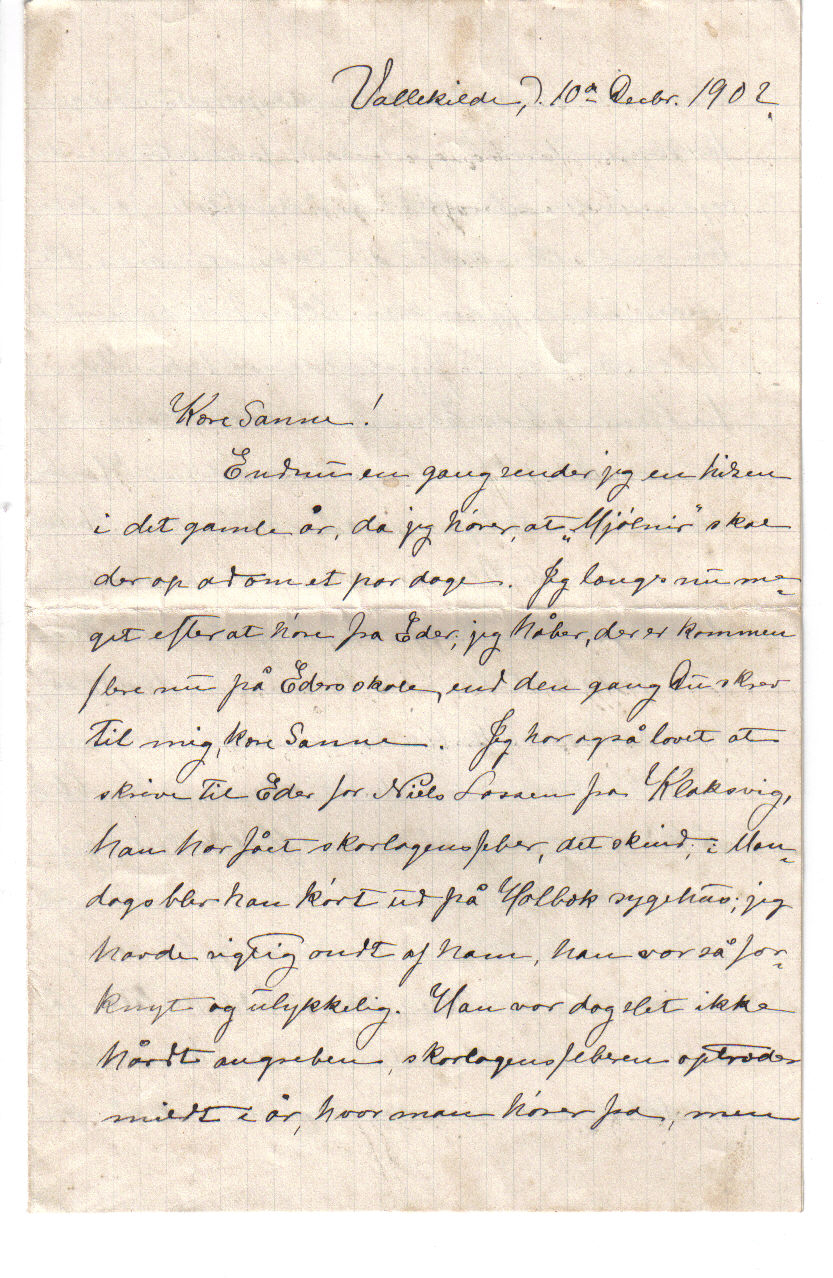 Vallekilde, d. 10de Decbr. 1902
Kære Sanne!
Endnu en gang sender jeg en hilsen
i det gamle år, da jeg hører, at „Mjølnir" skal
derop ad om et par dage. Jeg længes nu me-
get efter at høre fra Eder; jeg håber, der er kommen
flere nu på Eders skole, end den gang Du skrev
til mig, kære Sanne. Jeg har også lovet at
skrive til Eder for Niels Lassen fra Klaksvig,
han har fået skarlagensfeber, det skind; i Man-
dags blev han kørt ud på Holbæk sygehus; jeg
havde rigtig ondt af ham, han var så for-
knyt og ulykkelig. Han var dog slet ikke
hårdt angreben, skarlagensfeberen optræder
mildt i år, hvor man hører fra, men